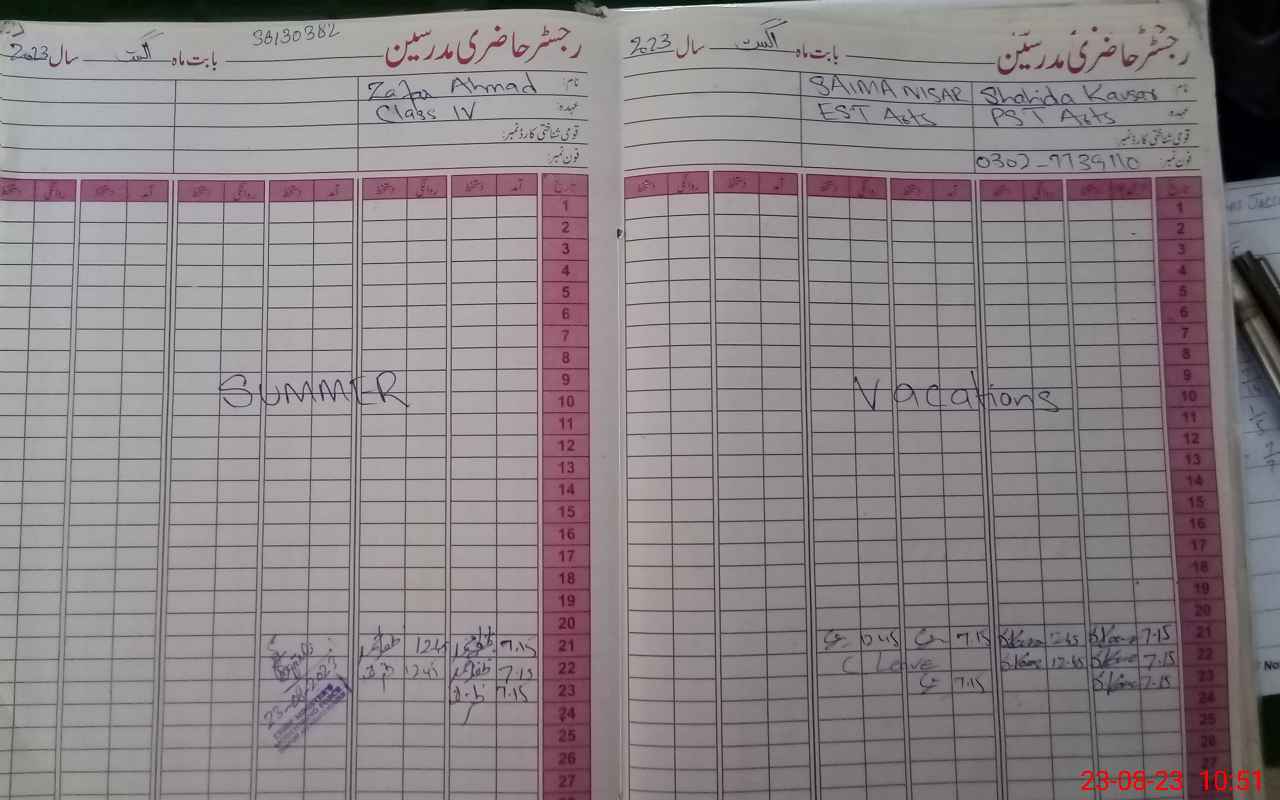 رجسٹر حاضری مدرسین بابت ماہ اگست سال 2023
نام: Shahida Kausar SAIMA NISAR
عہدہ: PST Arts EST Arts
قومی شناختی کارڈ نمبر:
فون نمبر:
تاریخ آمد دستخط روانگی دستخط آمد دستخط روانگی دستخط آمد دستخط روانگی دستخط
1
2
3
4
5
6
7
8
9
10
Vacations
11
12
13
14
15
16
17
18
19
20
21 7-15 12-45 7.15
22 7-15 12-45 C Leave
23 7-15 7.15
24
25
26
27
38130382
رجسٹر حاضری مدرسین بابت ماہ اگست سال 2023
نام: Zafar Ahmad
عہدہ: Class IV
قومی شناختی کارڈ نمبر:
فون نمبر:
تاریخ آمد دستخط روانگی دستخط آمد دستخط روانگی دستخط آمد دستخط روانگی
1
2
3
4
5
6
7
8
9
SUMMER
10
11
12
13
14
15
16
17
18
19
20
21 7.15 1245
22 7.15 1245
23 7.15
23-08-2023
24
25
26
27
No
23-08-23 10:51